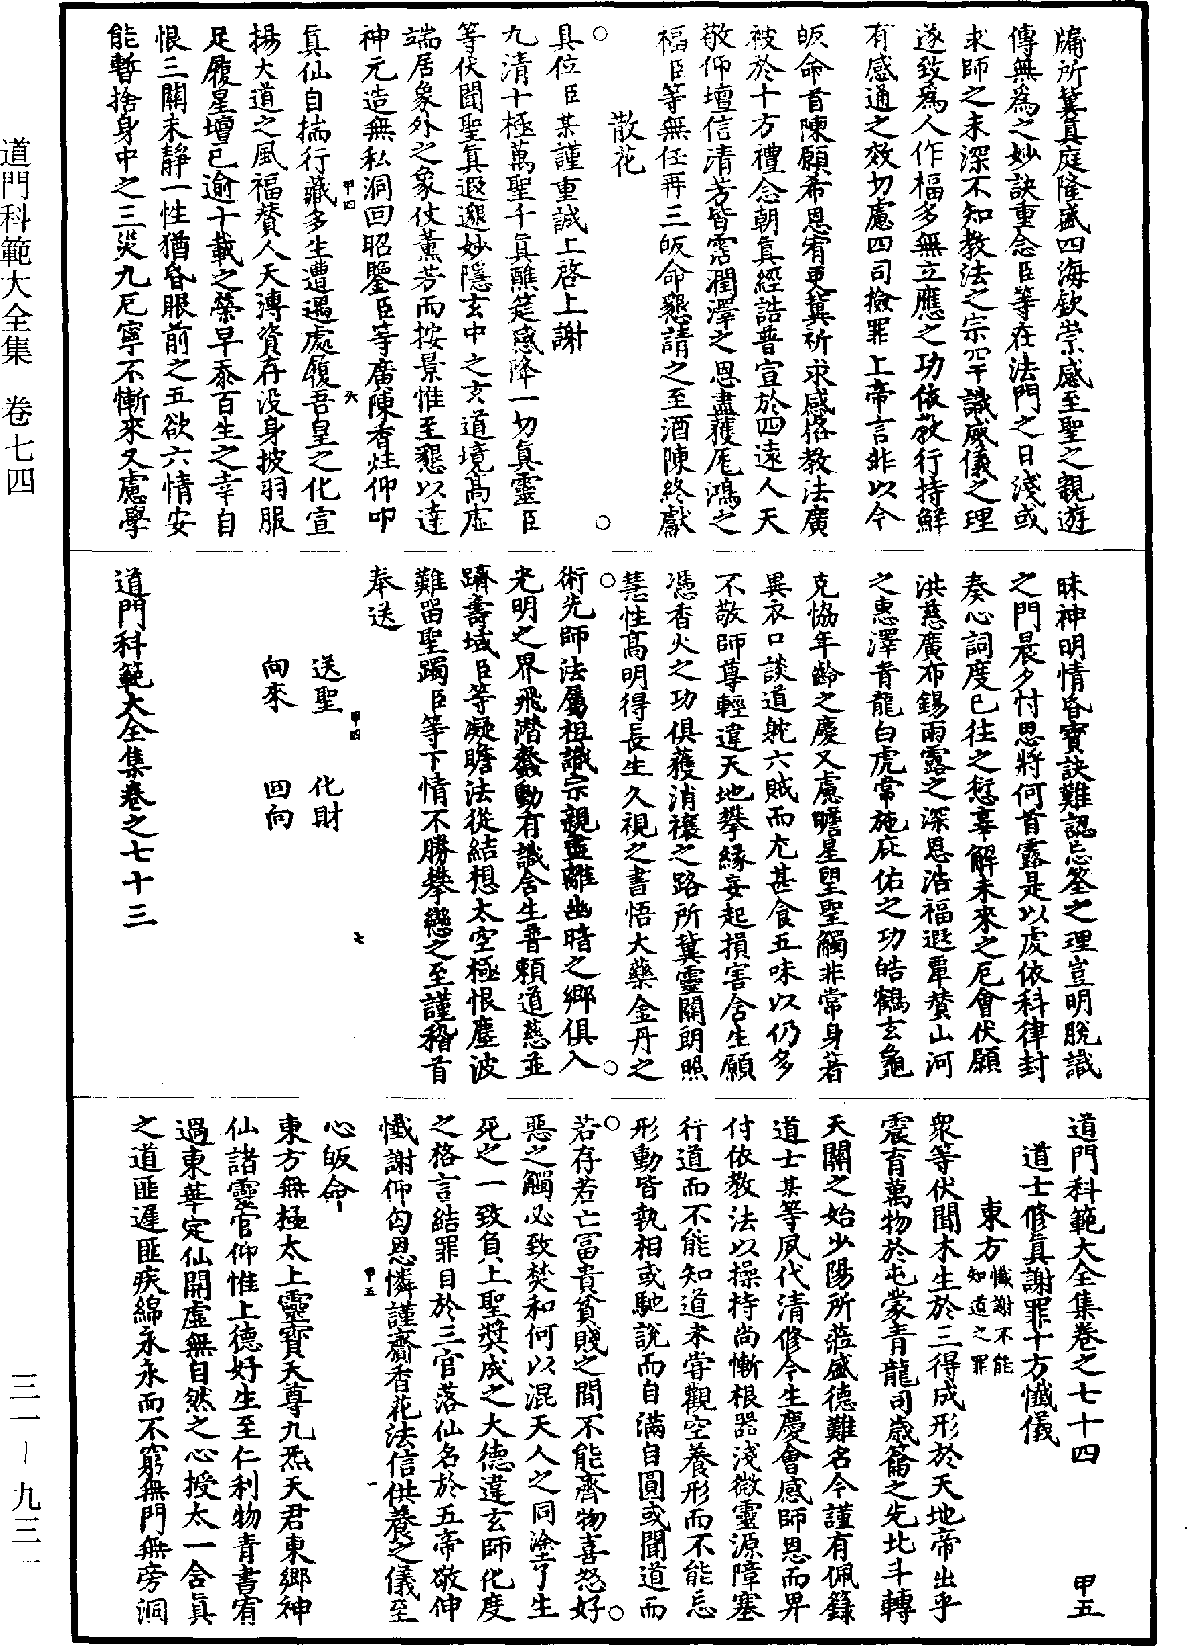 道門科範大全集　卷七四
三一－九三一
牖所冀真庭隆盛四海欽崇感至聖之親遊
傳無為之妙訣重念臣等在法門之日淺或
求師之未深不知教法之宗罕識威儀之理
遂致為人作福多無立應之功依教行持鮮
有感通之效切慮四司撿罪上帝言非以今
皈命首陳願希恩宥更冀祈求感格教法廣
被於十方禮念朝真經誥普宣於四遠人天
敬仰壇信清芳皆霑潤澤之恩盡獲厖鴻之
福臣等無任再三皈命懇請之至酒陳終獻
散花
具位臣某謹重誠上啓上謝
九清十極萬聖千真醮筵感降一切真靈臣
等伏聞聖真遐邈妙隱玄中之玄道境高虛
端居象外之象仗薰芳而按景惟至懇以達
神元造無私洞回昭鑒臣等廣陳香炷仰叩
真仙自揣行藏多生遭遇處履吾皇之化宣
揚大道之風福贊人天溥資存没身披羽服
足履星壇已逾十載之榮早忝百生之幸自
恨三關未靜一性猶昏眼前之五欲六情安
能暫捨身中之三災九厄寧不慚來又慮學
昧神明情昏寶訣難認忘筌之理豈明脫識
之門晨夕忖思將何首露是以虔依科律封
奏心詞度已往之愆辜解未來之厄會伏願
洪慈廣布錫雨露之深恩浩福遐覃贊山河
之惠澤青龍白虎常施庇佑之功皓鶴玄龜
克協年齡之慶又慮瞻星望聖觸非常身著
異衣口談道軆六賊而尤甚食五味以仍多
不敬師尊輕違天地攀緣妄起損害含生願
憑香火之功俱獲消禳之路所冀靈關朗照
慧性高明得長生久視之書悟大藥金丹之
術先師法屬祖識宗親並離幽暗之鄉俱入
光明之界飛潛蠢動有識含生普賴道慈並
躋壽域臣等凝瞻法從結想太空極恨塵波
難留聖躅臣等下情不勝攀戀之至謹稽首
奉送
送聖　化財
向來　回向
道門科範大全集卷之七十三
道門科範大全集卷之七十四　甲五
道士修真謝罪十方懺儀
東方懺謝不能知道之罪
衆等伏聞木生於三得成形於天地帝出乎
震育萬物於屯蒙青龍司歲籥之先北斗轉
天關之始少陽所蒞盛德難名今謹有佩籙
道士某等夙代清修今生慶會感師恩而畀
付依教法以操持尚慚根器淺微靈源障塞
行道而不能知道未嘗觀空養形而不能忘
形動皆執相或馳說而自滿自圓或聞道而
若存若亡冨貴貧賤之間不能齊物喜怒好
惡之觸必致焚和何以混天人之同塗了生
死之一致負上聖奬成之大德違玄師化度
之格言結罪目於三官落仙名於五帝敬伸
懺謝仰匄恩憐謹齋香花法信供養之儀至
心皈命
東方無極太上靈寶天尊九炁天君東鄉神
仙諸靈官仰惟上德好生至仁利物青書宥
過東華定仙開虛無自然之心授太一含真
之道匪遲匪疾綿永永而不窮無門無旁洞
甲四
六
甲四
七
甲五
一